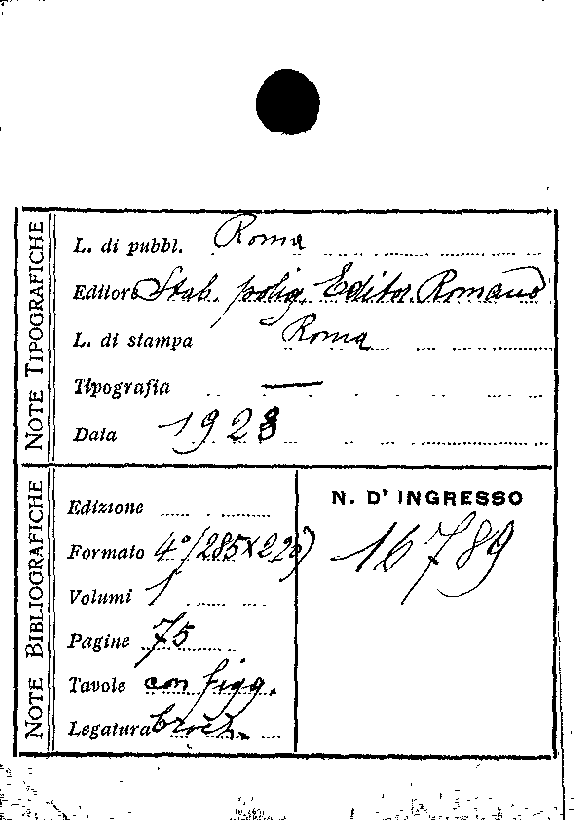 NOTE TIPOGRAFICHE
L. di pubbl. Roma
Editore Stab. polig. Editor. Romano
L. di stampa Roma
Tipografia —
Data 1928
NOTE BIBLIOGRAFICHE
Edizione
Formato 4° (285x220)
Volumi 1
Pagine 75
Tavole con figg.
Legatura broch.
N. D' INGRESSO
16789